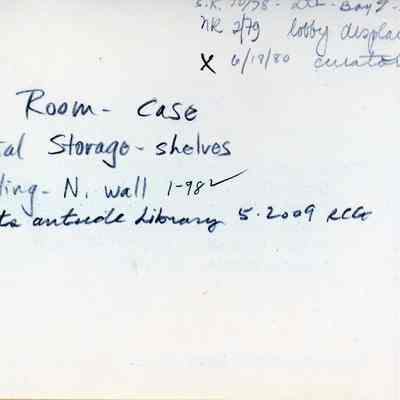 S.R. 10/78 - Bay
NR 2/79 lobby displa
X 6/18/80 curato
Room - case
al Storage - shelves
ling - N. wall 1-982 ✓
ts outside Library 5.2009 RCG